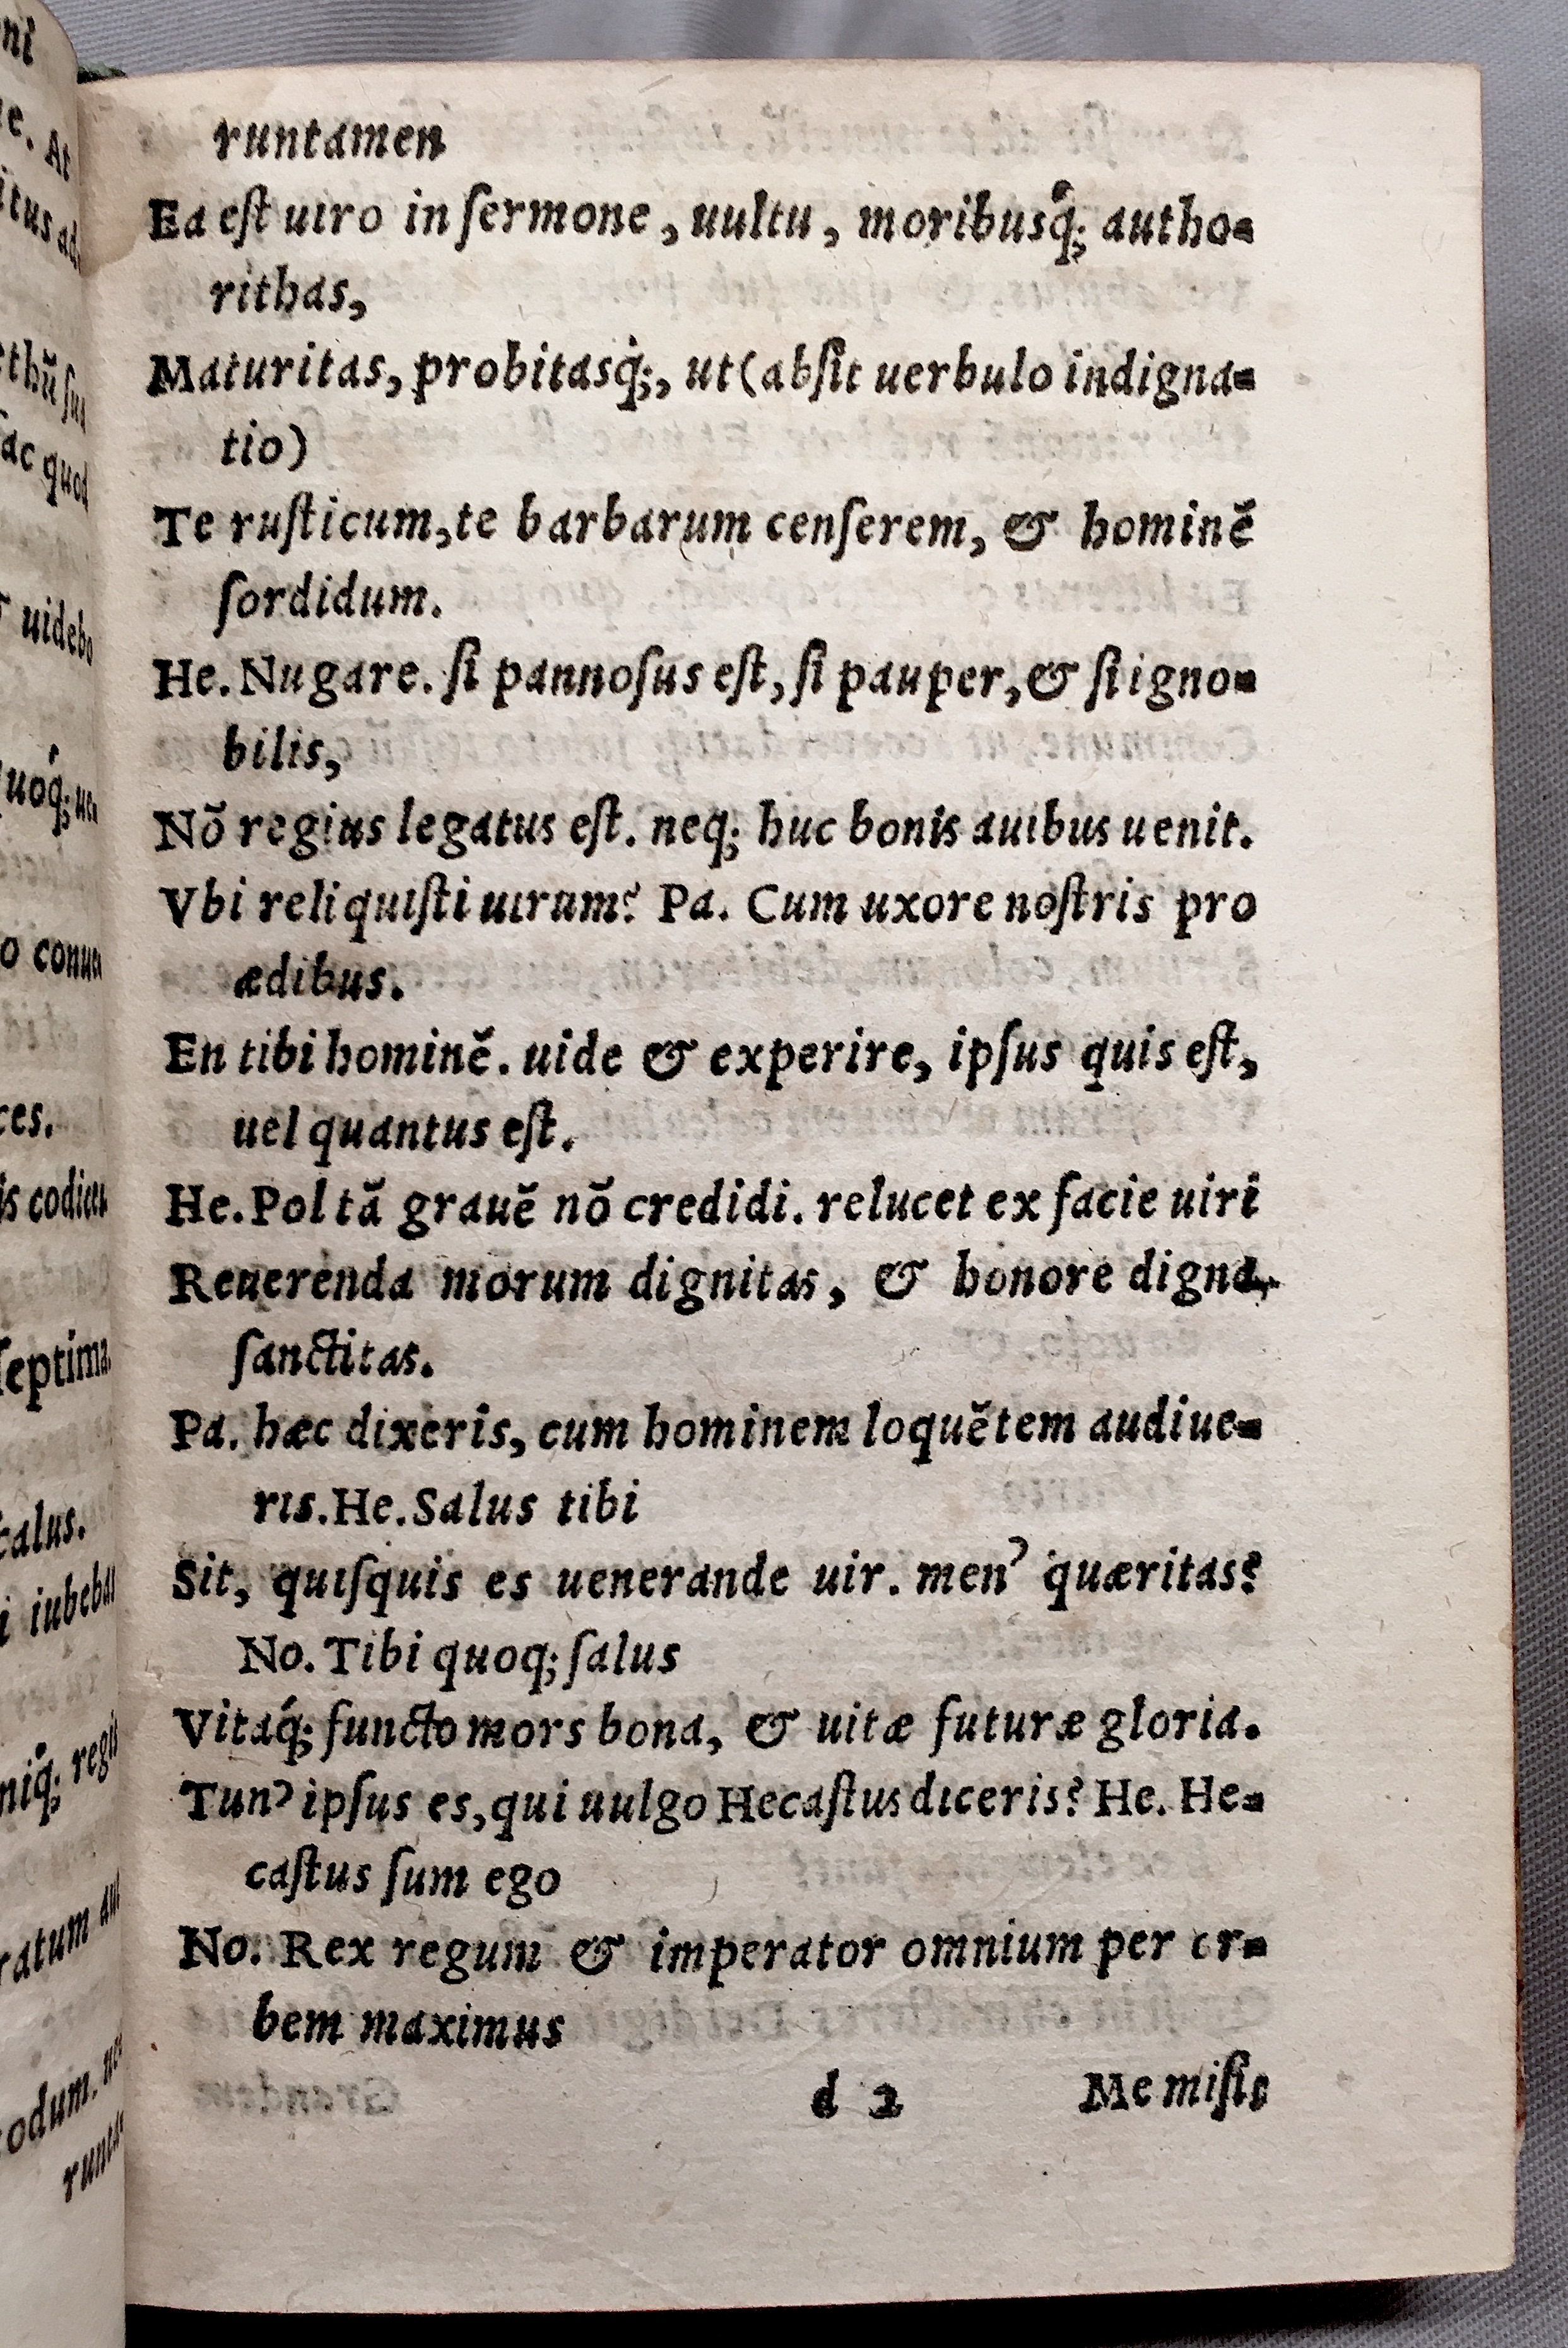 runtamen
Ea est uiro in sermone, uultu, moribusq́; autho-
rithas,
Maturitas, probitasq́;, ut (absit uerbulo indigna-
tio)
Te rusticum, te barbarum censerem, & hominẽ
sordidum.
He. Nugare. si pannosus est, si pauper, & si igno-
bilis,
Nõ regius legatus est. neq; huc bonis auibus uenit.
Vbi reliquisti uirum? Pa. Cum uxore nostris pro
ædibus.
En tibi hominẽ. uide & experire, ipsus quis est,
uel quantus est.
He. Pol tã grauẽ nõ credidi. relucet ex facie uiri
Reuerenda morum dignitas, & honore digna,
sanctitas.
Pa. hæc dixeris, cum hominem loquẽtem audiue-
ris. He. Salus tibi
Sit, quisquis es uenerande uir. men' quæritas?
No. Tibi quoq; salus
Vitaq́; functo mors bona, & uitæ futuræ gloria.
Tun' ipsus es, qui uulgo Hecastus diceris? He. He-
castus sum ego
No. Rex regum & imperator omnium per or-
bem maximus
d 2 Me misit